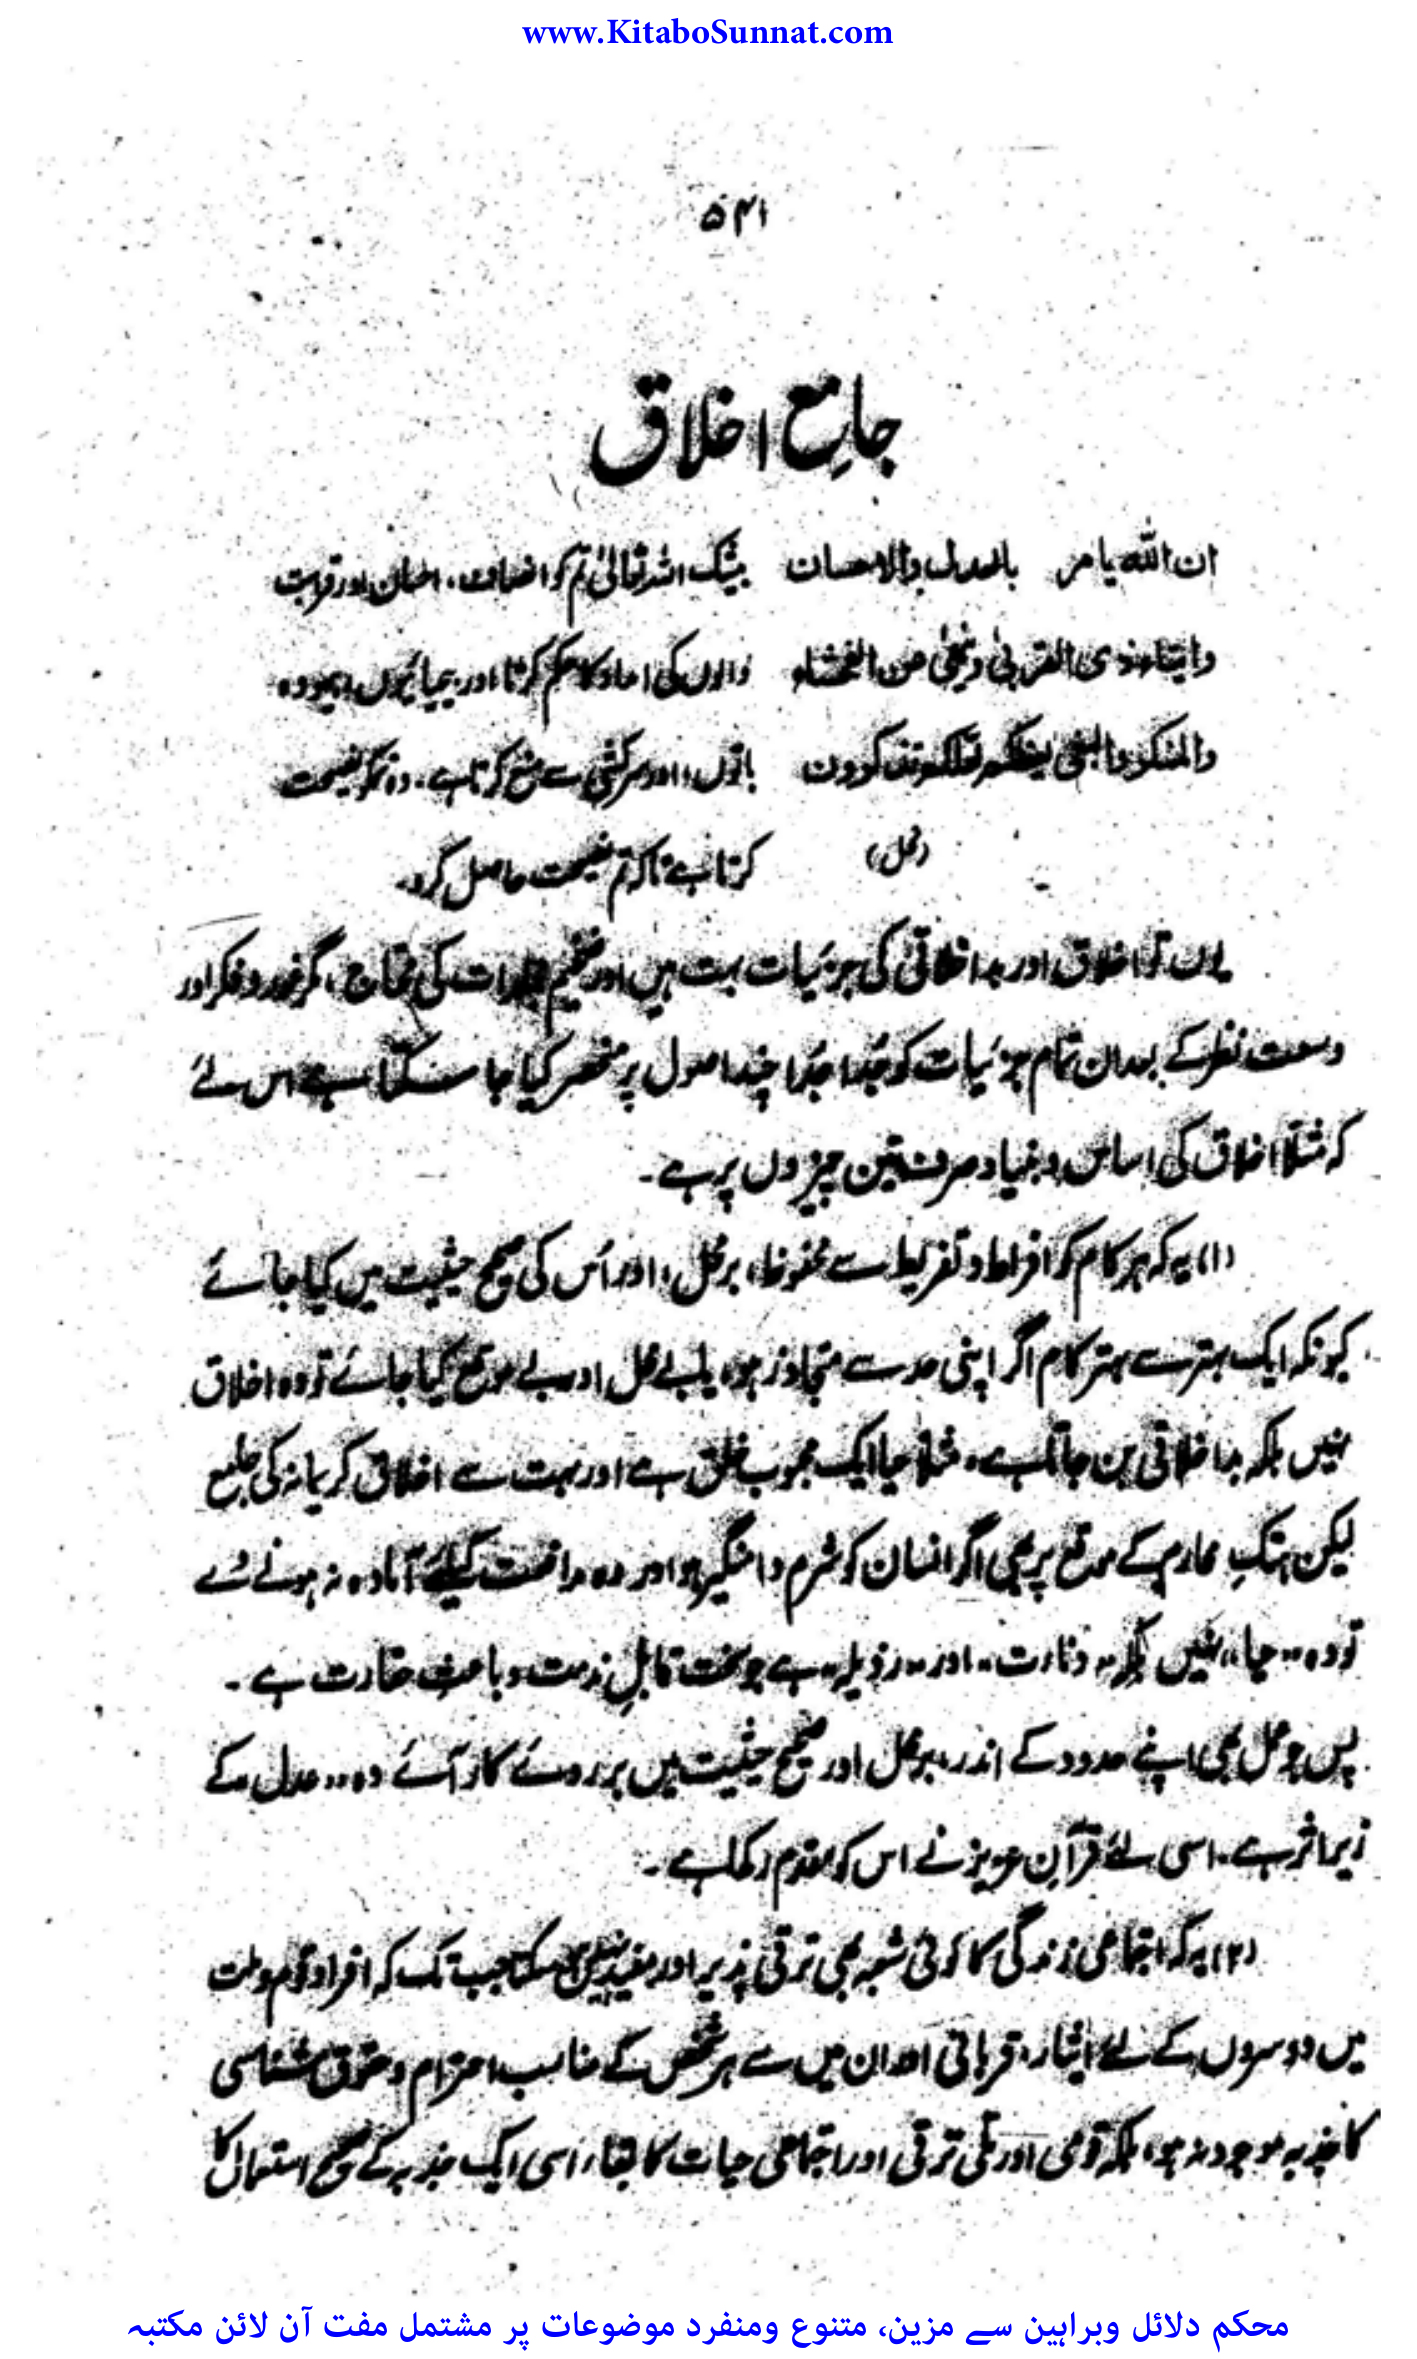 www.KitaboSunnat.com
۵۴۱
جامع اخلاق
ان الله یامر بالعدل والاحسان بیشک اللہ تعالیٰ تم کو انصاف، احسان اور قرابت
وایتاء ذی القربیٰ وینھیٰ عن الفحشاء والوں کی امداد کا حکم کرتا اور بیحیائیوں، بیہودہ
والمنکر والبغی یعظکم لعلکم تذکرون باتوں، اور سرکشی سے منع کرتا ہے۔ وہ تم کو نصیحت
(نحل) کرتا ہے تاکہ تم نصیحت حاصل کرو۔
یوں تو اخلاق اور بداخلاقی کی جزئیات بہت ہیں اور ضخیم مجلدات کی محتاج، مگر غور و فکر اور
وسعت نظر کے بعد ان تمام جزئیات کو جُدا جُدا چند اصول پر منحصر کیا جا سکتا ہے اس لئے
کہ مثلاً اخلاق کی اساس و بنیاد صرف تین چیزوں پر ہے۔
(۱) یہ کہ ہر کام کو افراط و تفریط سے محفوظ، برمحل، اور اُس کی صحیح حیثیت میں کیا جائے
کیونکہ ایک بہتر سے بہتر کام اگر اپنی حد سے متجاوز ہو، یا بے محل اور بے موقع کیا جائے تو وہ اخلاق
نہیں بلکہ بداخلاقی بن جاتا ہے، مثلاً حیا ایک محبوب خلق ہے اور بہت سے اخلاق کریمانہ کی جامع
لیکن ہتکِ محارم کے موقع پر بھی اگر انسان کو شرم دامنگیر ہو اور وہ مدافعت کیلئے آمادہ نہ ہونے دے
تو وہ "حیا" نہیں بلکہ "دنائت" اور "رذیلہ" ہے جو سخت قابلِ مذمت و باعث حقارت ہے۔
پس جو عمل بھی اپنے حدود کے اندر، برمحل اور صحیح حیثیت میں بروئے کار آئے وہ "عدل" کے
زیر اثر ہے۔ اسی لئے قرآن عزیز نے اس کو مقدم رکھا ہے۔
(۲) یہ کہ اجتماعی زندگی کا کوئی شعبہ بھی ترقی پذیر اور مفید نہیں ہو سکتا جب تک کہ افراد قوم و ملت
میں دوسروں کے لئے ایثار، قربانی اور ان میں سے ہر شخص کے مناسب احترام و حقوق شناسی
کا جذبہ موجود نہ ہو، بلکہ قومی اور ملی ترقی اور اجتماعی حیات کا بقاء، اسی ایک جذبہ کے صحیح استعمال کا
محکم دلائل وبراہین سے مزین، متنوع ومنفرد موضوعات پر مشتمل مفت آن لائن مکتبہ